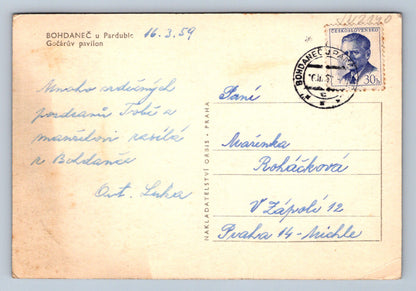 BOHDANEČ u Pardubic 16.3.59
Gočárův pavilon
Mnoho srdečných
pozdravů Tobě a
manželovi zasílá
z Bohdanče
Ant. Luka
NAKLADATELSTVÍ ORBIS - PRAHA
ČESKOSLOVENSKO
30h
BOHDANEČ U PARD
Paní
Mařenka
Roháčková
V Zápolí 12
Praha 14 - Michle